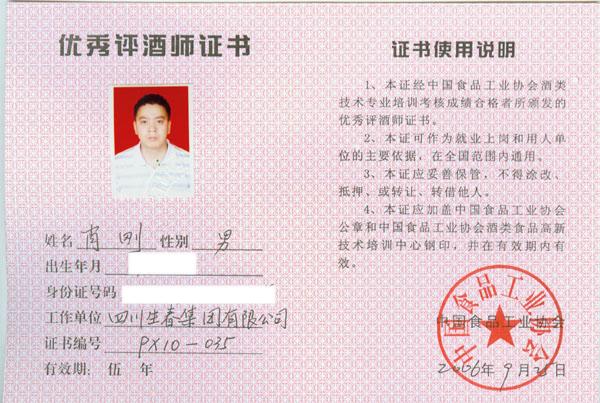 优秀评酒师证书
姓名 肖刚 性别 男
出生年月
身份证号码
工作单位 四川生春集团有限公司
证书编号 PX10-035
有效期：伍 年
证书使用说明
1、本证经中国食品工业协会酒类
技术专业培训考核成绩合格者所颁发的
优秀评酒师证书。
2、本证可作为就业上岗和用人单
位的主要依据，在全国范围内通用。
3、本证应妥善保管，不得涂改、
抵押、或转让、转借他人。
4、本证应加盖中国食品工业协会
公章和中国食品工业协会酒类食品高新
技术培训中心钢印，并在有效期内有
效。
中国食品工业协会
中国食品工业协会
2006年 9月25日